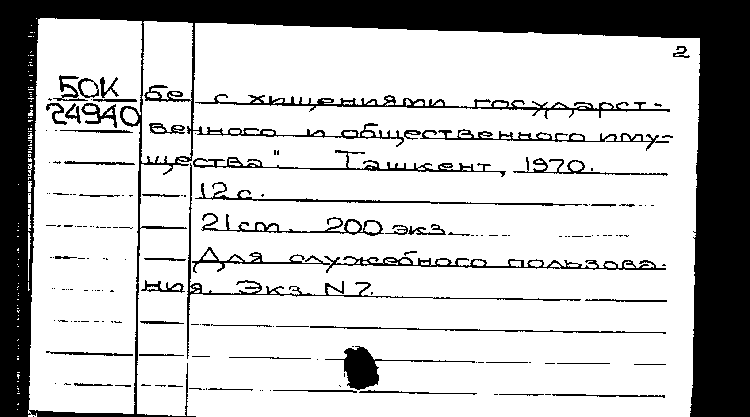 2
БОК
24940
бе с хищениями государст-
венного и общественного иму-
щества". Ташкент, 1970.
12 с.
21 cm. 200 экз.
Для служебного пользова-
ния. Экз. N 7.